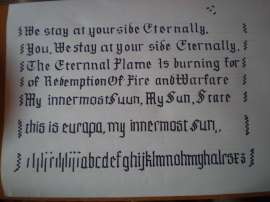 We stay at yourside Eternally,
You, We stay at your side Eternally,
The Eternnal Flame Is burning for
of Redemption Of Fire and Warfare
My innermost Suun, My Sun, Stare
this is europa, my innermost sun,,
abcdefghijklmno